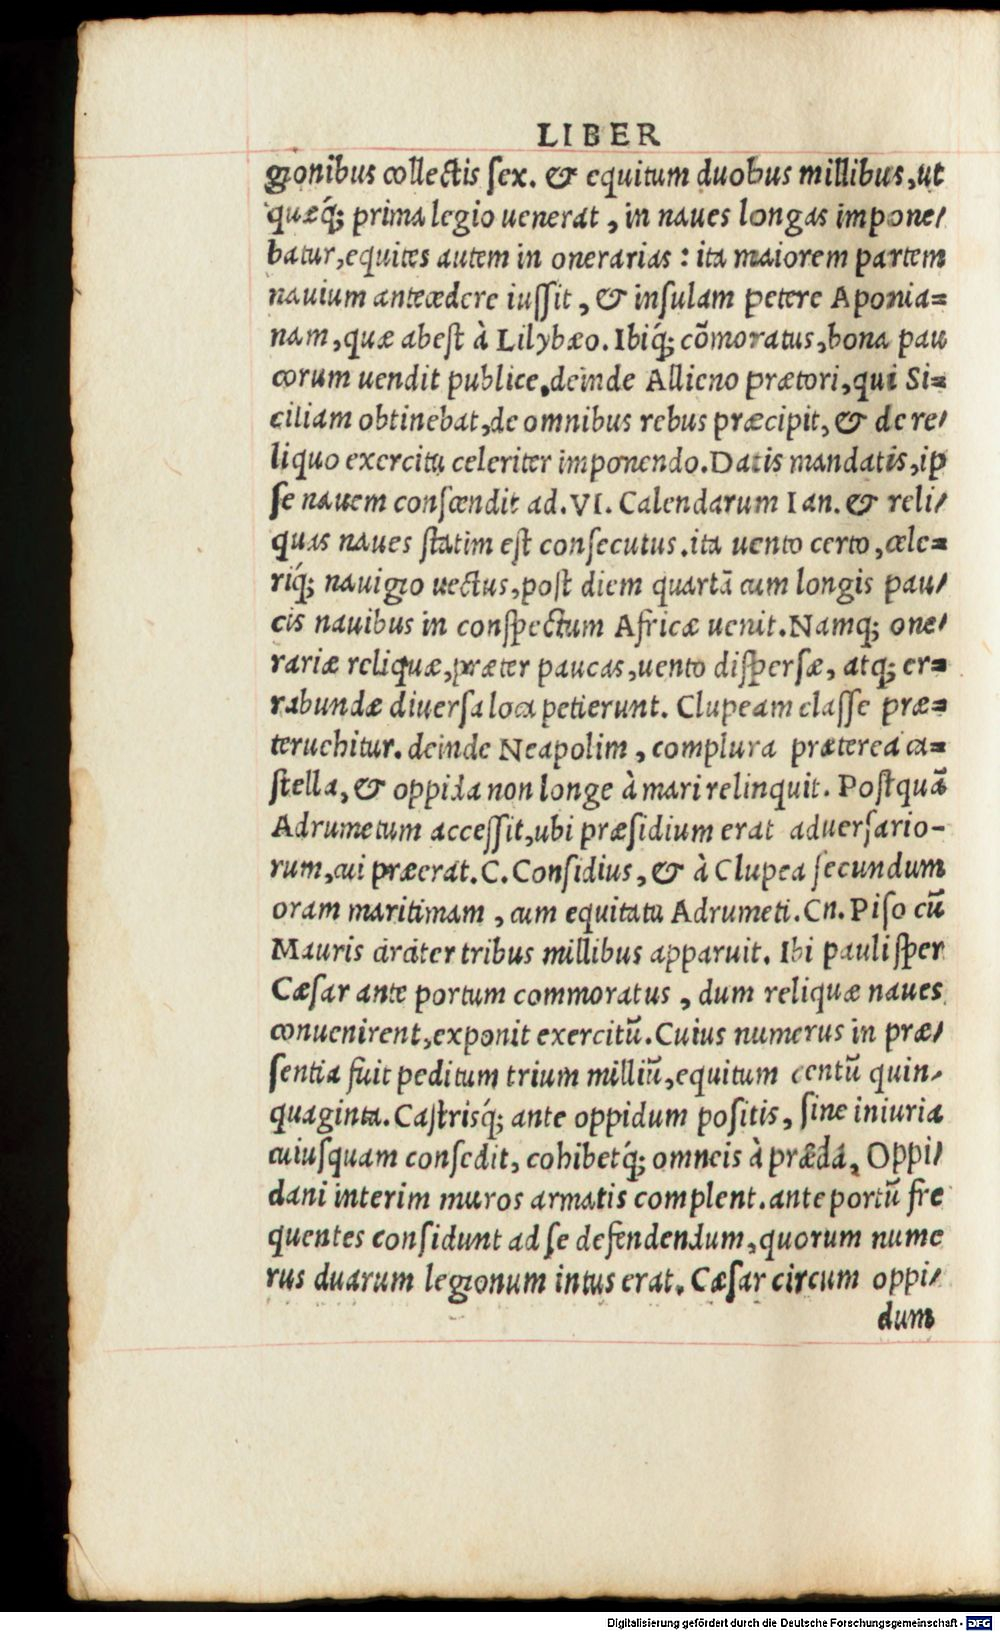 LIBER
gionibus collectis ſex. & equitum duobus millibus, ut
quæq́; prima legio uenerat, in naues longas impone/
batur, equites autem in onerarias: ita maiorem partem
nauium antecedere iuſſit, & inſulam petere Aponia=
nam, quæ abeſt à Lilybæo. Ibiq́; cõmoratus, bona pau
corum uendit publice. deinde Allieno prætori, qui Si=
ciliam obtinebat, de omnibus rebus præcipit, & de re/
liquo exercitu celeriter imponendo. Datis mandatis, ip
ſe nauem conſcendit ad. VI. Calendarum Ian. & reli/
quas naues ſtatim eſt conſecutus. ita uento certo, cele=
riq́; nauigio uectus, poſt diem quartã cum longis pau/
cis nauibus in conſpectum Africæ uenit. Namq; one/
rariæ reliquæ, præter paucas, uento diſperſæ, atq; er=
rabundæ diuerſa loca petierunt. Clupeam claſſe præ=
teruehitur. deinde Neapolim, complura præterea ca=
ſtella, & oppida non longe à mari relinquit. Poſtquã
Adrumetum acceſſit, ubi præſidium erat aduerſario-
rum, cui præerat. C. Conſidius, & à Clupea ſecundum
oram maritimam, cum equitatu Adrumeti. Cn. Piſo cũ
Mauris circiter tribus millibus apparuit. Ibi pauliſper
Cæſar ante portum commoratus, dum reliquæ naues
conuenirent, exponit exercitũ. Cuius numerus in præ/
ſentia fuit peditum trium milliũ, equitum centũ quin/
quaginta. Caſtrisq́; ante oppidum poſitis, ſine iniuria
cuiuſquam conſedit, cohibetq́; omneis à præda, Oppi/
dani interim muros armatis complent. ante portũ fre
quentes conſidunt ad ſe defendendum, quorum nume
rus duarum legionum intus erat. Cæſar circum oppi/
dum
Digitalisierung gefördert durch die Deutsche Forschungsgemeinschaft - DFG